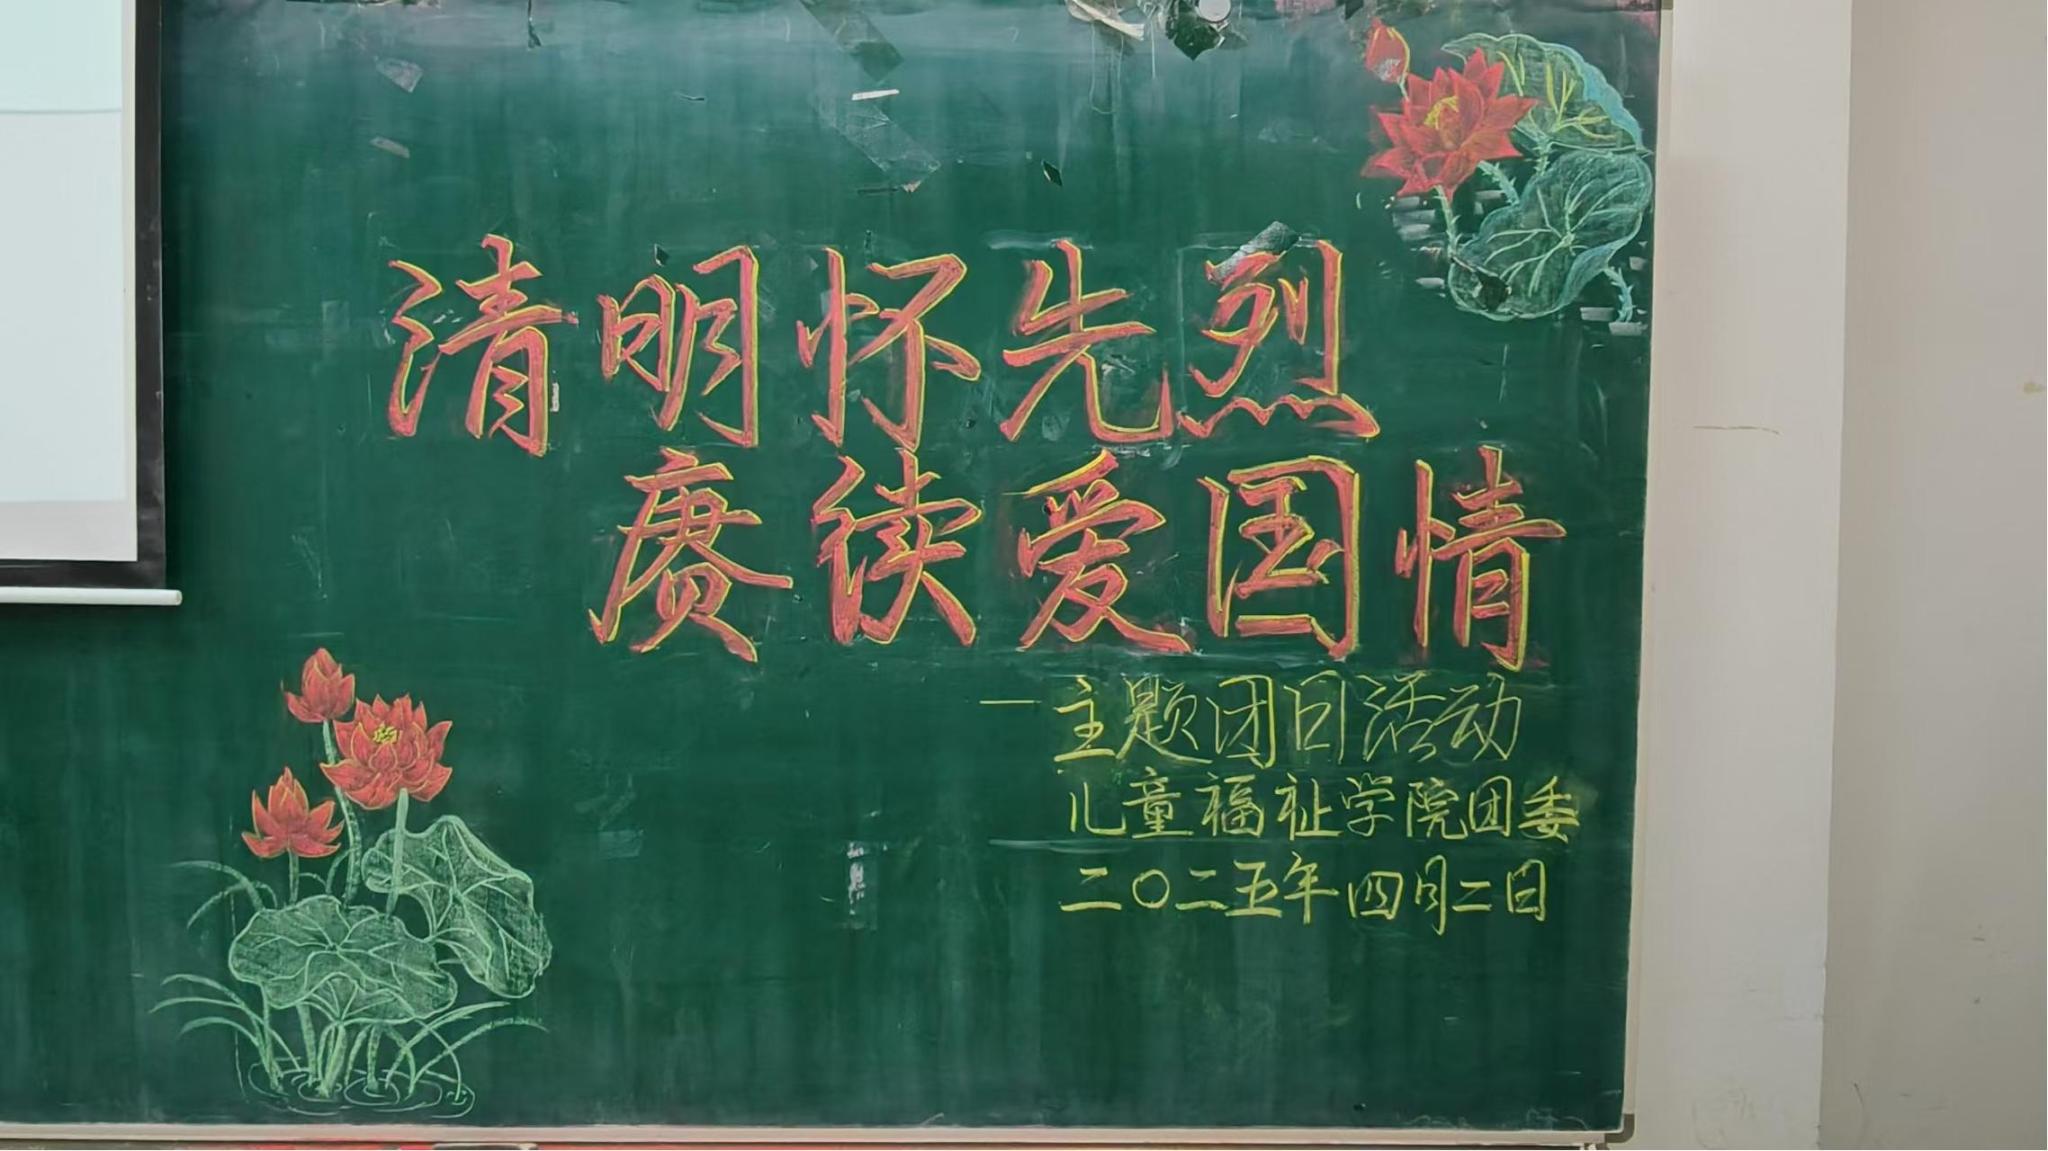 清明怀先烈
赓续爱国情
—主题团日活动
儿童福祉学院团委
二〇二五年四月二日